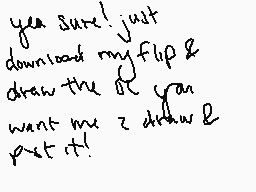 yea sure! just
download my flip &
draw the oc you
want me 2 draw &
post it!